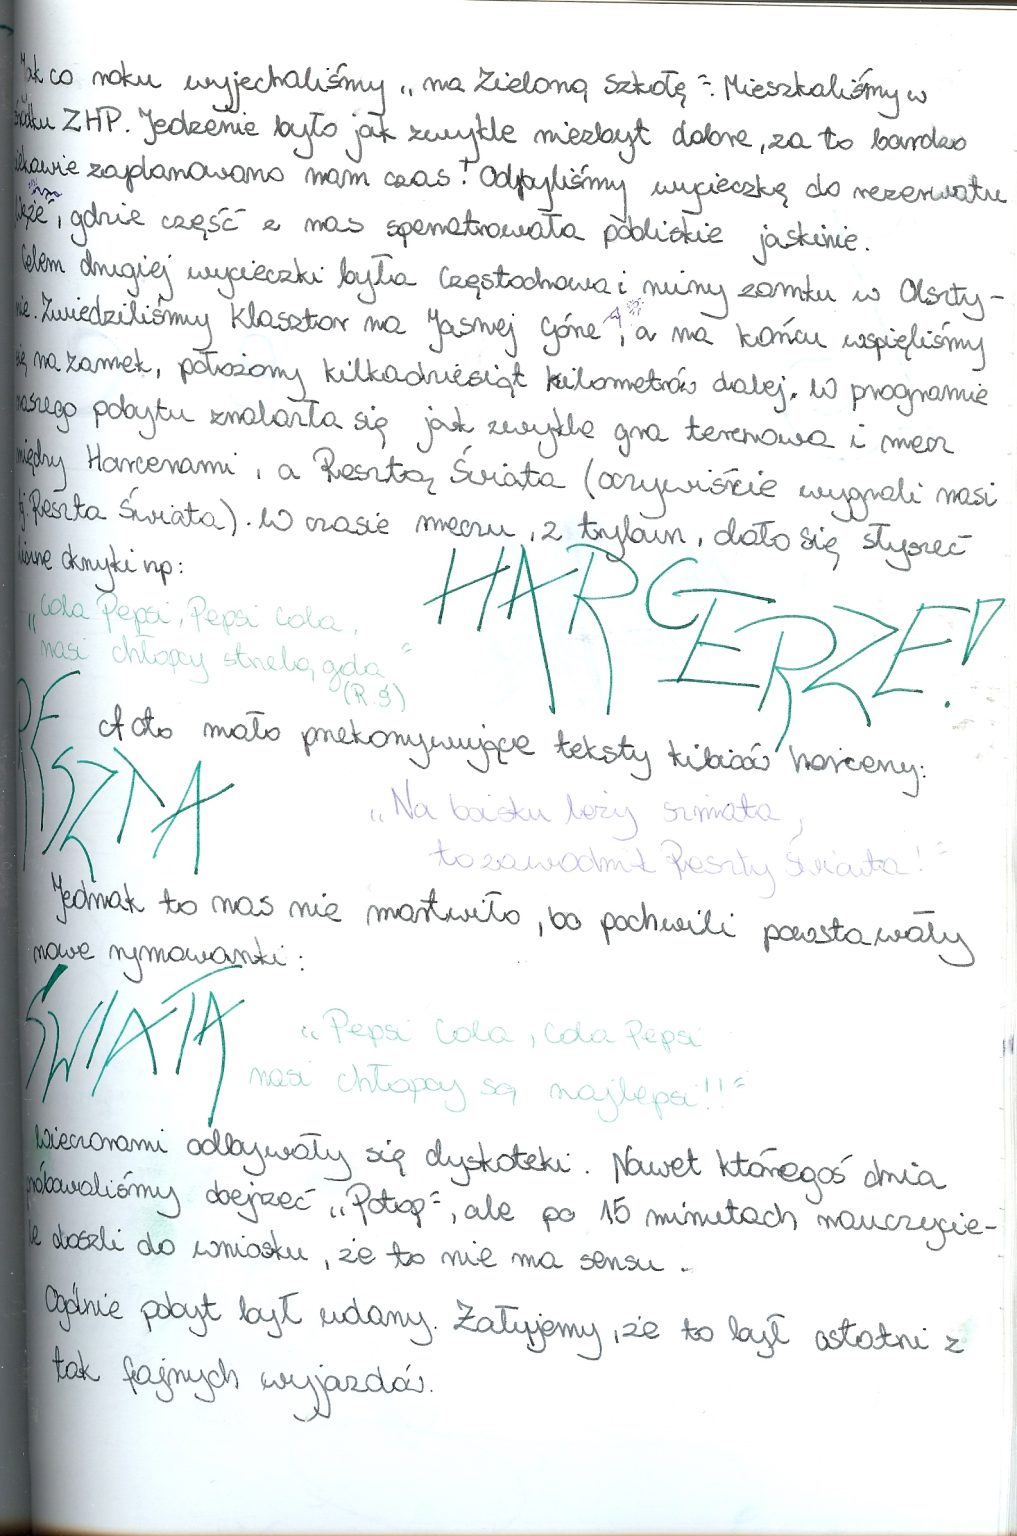 Jak co roku wyjechaliśmy „na Zieloną Szkołę”. Mieszkaliśmy w
ośrodku ZHP. Jedzenie było jak zwykle niezbyt dobre, za to bardzo
ciekawie zaplanowano nam czas! Odbyliśmy wycieczkę do rezerwatu
gdzie część z nas spenetrowała pobliskie jaskinie.
Celem drugiej wycieczki była Częstochowa i ruiny zamku w Olszty-
nie. Zwiedziliśmy Klasztor na Jasnej Górze, a na końcu wspięliśmy
się na zamek, położony kilkadziesiąt kilometrów dalej. W programie
naszego pobytu znalazła się jak zwykle gra terenowa i mecz
między Harcerzami, a Resztą Świata (oczywiście wygrali nasi
tj. Reszta Świata). W czasie meczu, z trybun, dało się słyszeć
różne okrzyki np:
HARCERZE!
„Cola Pepsi, Pepsi Cola,
nasi chłopcy strzelą gola”
(R.Ś)
RESZTA
A oto mało przekonywujące teksty kibiców harcerzy:
„Na boisku leży szmata,
to zawodnik Reszty Świata!”
Jednak to nas nie martwiło, bo po chwili powstawały
nowe rymowanki:
ŚWIATA
„Pepsi Cola, Cola Pepsi
nasi chłopcy są najlepsi!!”
Wieczorami odbywały się dyskoteki. Nawet któregoś dnia
próbowaliśmy obejrzeć „Potop”, ale po 15 minutach nauczycie-
le doszli do wniosku, że to nie ma sensu.
Ogólnie pobyt był udany. Żałujemy, że to był ostatni z
tak fajnych wyjazdów.